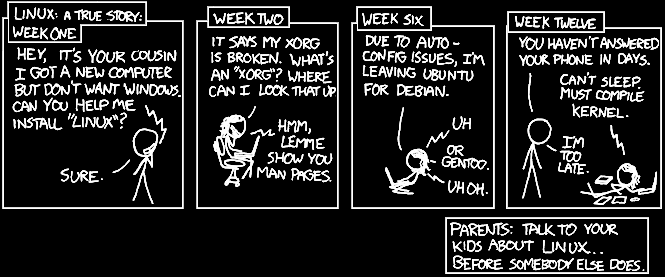 LINUX: A TRUE STORY:
WEEK ONE
HEY, IT'S YOUR COUSIN
I GOT A NEW COMPUTER
BUT DON'T WANT WINDOWS.
CAN YOU HELP ME
INSTALL "LINUX"?
SURE.
WEEK TWO
IT SAYS MY XORG
IS BROKEN. WHAT'S
AN "XORG"? WHERE
CAN I LOOK THAT UP
HMM,
LEMME
SHOW YOU
MAN PAGES.
WEEK SIX
DUE TO AUTO-
CONFIG ISSUES, I'M
LEAVING UBUNTU
FOR DEBIAN.
UH
OR
GENTOO.
UH OH.
WEEK TWELVE
YOU HAVEN'T ANSWERED
YOUR PHONE IN DAYS.
CAN'T SLEEP.
MUST COMPILE
KERNEL.
I'M
TOO
LATE.
PARENTS: TALK TO YOUR
KIDS ABOUT LINUX...
BEFORE SOMEBODY ELSE DOES.